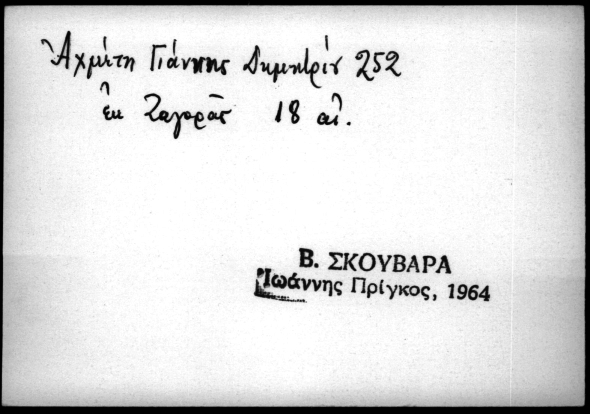 Ἀχμέτη Γιάννης Δημητρίου 252
ἐκ Ζαγορᾶς 18 αἰ.
Β. ΣΚΟΥΒΑΡΑ
Ἰωάννης Πρίγκος, 1964